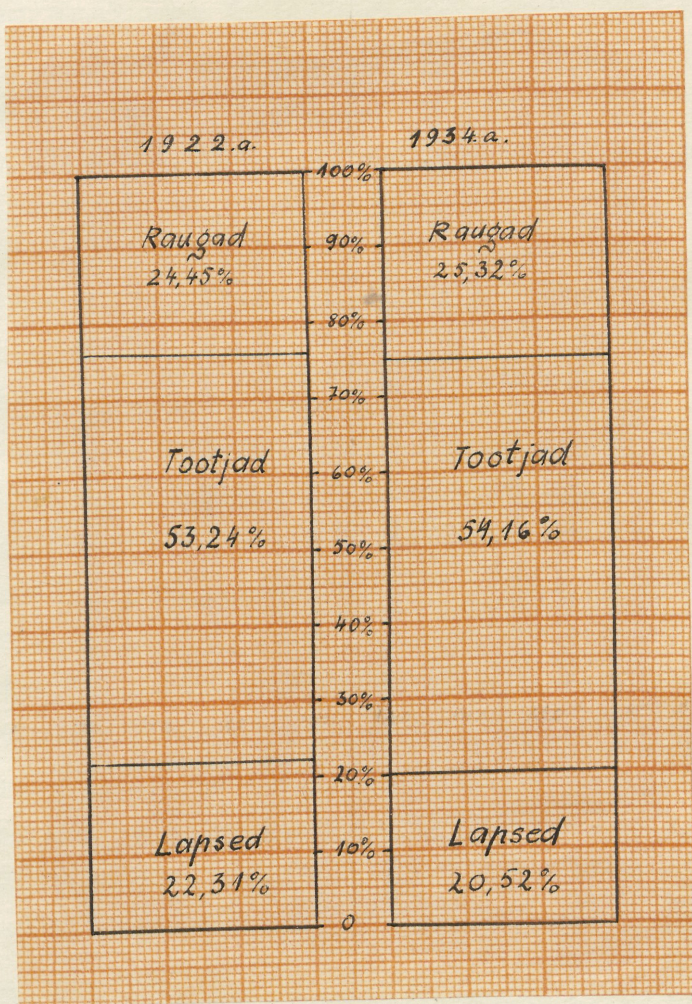 1922.a.
Raugad
24,45%
Tootjad
53,24%
Lapsed
22,31%
100%
90%
80%
70%
60%
50%
40%
30%
20%
10%
0
1934.a.
Raugad
25,32%
Tootjad
54,16%
Lapsed
20,52%